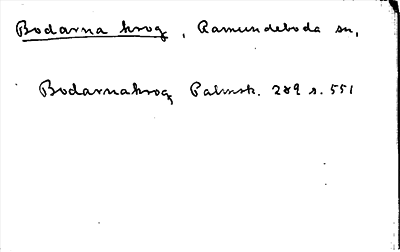 Bodarna krog, Ramundeboda sn.
Bodarnakrog Palmsk. 289 s. 551